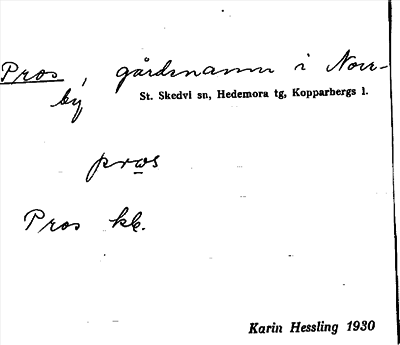 Pros, gårdsnamn i Norr-
by St. Skedvi sn, Hedemora tg, Kopparbergs l.
pros
Pros kb.
Karin Hessling 1930